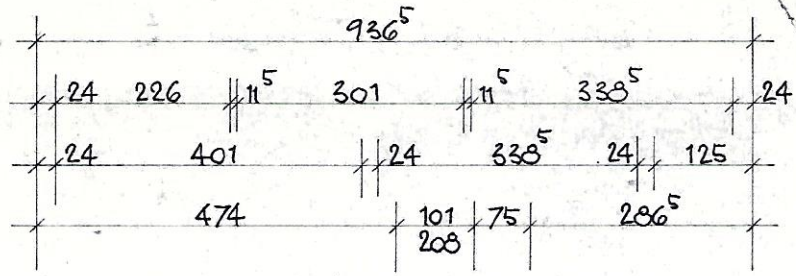 936⁵
24 226 11⁵ 301 11⁵ 338⁵ 24
24 401 24 338⁵ 24 125
474 101 75 286⁵
208